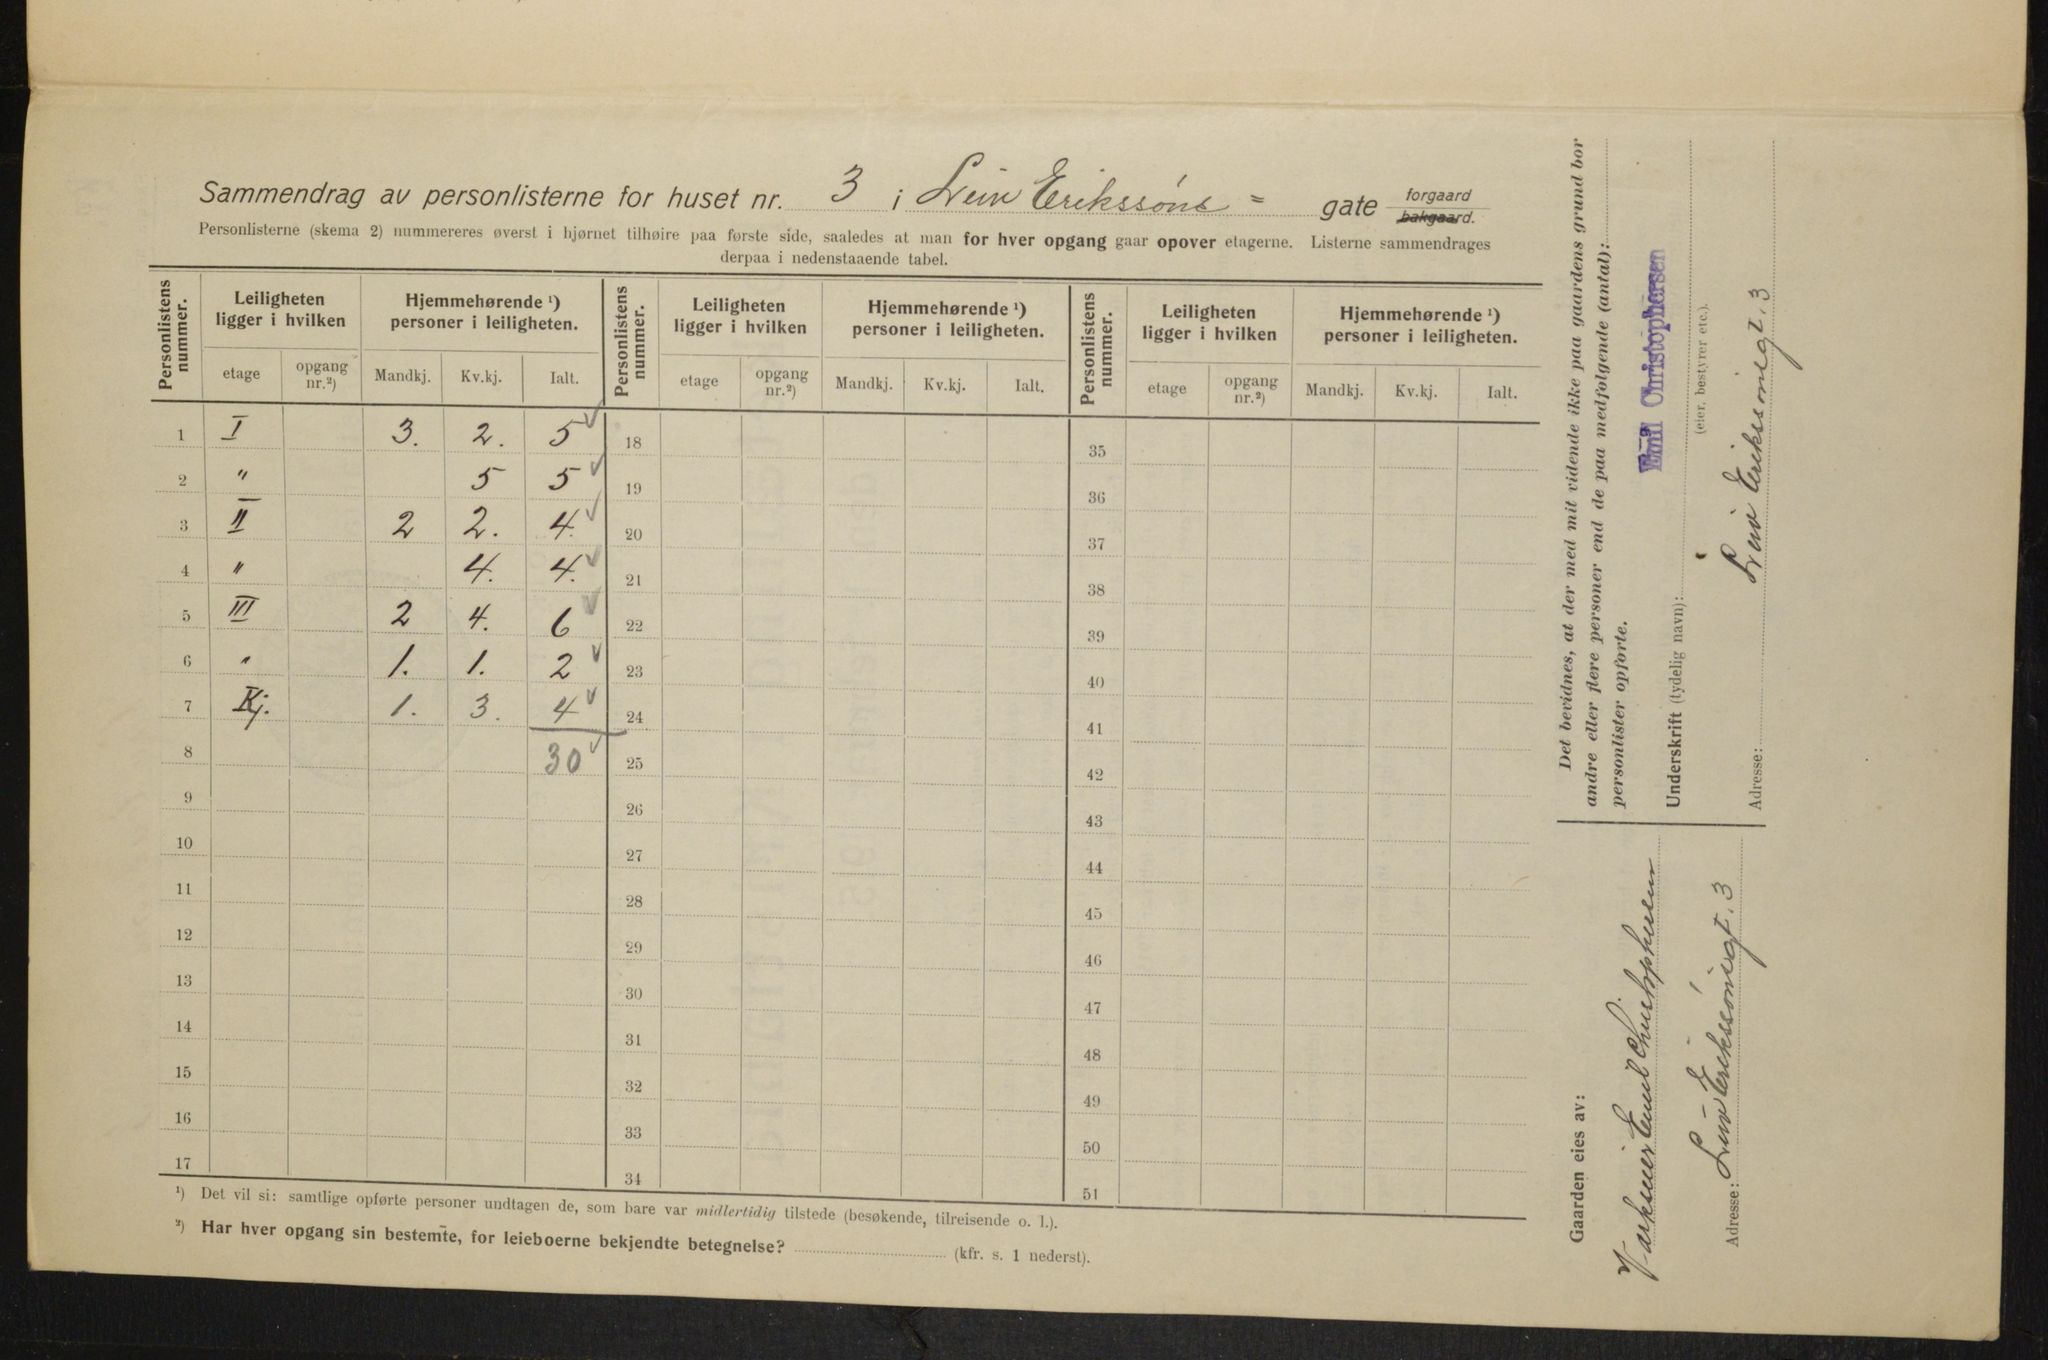 Sammendrag av personlisterne for huset nr. 3 i Leiv Erikssøns - gate forgaard bakgaard.
Personlisterne (skema 2) nummereres øverst i hjørnet tilhøire paa første side, saaledes at man for hver opgang gaar opover etagerne. Listerne sammendrages
derpaa i nedenstaaende tabel.
Personlistens nummer. Leiligheten ligger i hvilken Hjemmehørende ¹) personer i leiligheten. Personlistens nummer. Leiligheten ligger i hvilken Hjemmehørende ¹) personer i leiligheten. Personlistens nummer. Leiligheten ligger i hvilken Hjemmehørende ¹) personer i leiligheten.
etage opgang nr.²) Mandkj. Kv.kj. Ialt. etage opgang nr.²) Mandkj. Kv.kj. Ialt. etage opgang nr.²) Mandkj. Kv.kj. Ialt.
1 I 3. 2. 5 18 35
2 " 5 5 19 36
3 II 2 2. 4. 20 37
4 " 4. 4. 21 38
5 III 2 4. 6 22 39
6 " 1. 1. 2 23 40
7 Kj. 1. 3. 4 24 41
8 30 25 42
9 26 43
10 27 44
11 28 45
12 29 46
13 30 47
14 31 48
15 32 49
16 33 50
17 34 51
¹) Det vil si: samtlige opførte personer undtagen de, som bare var midlertidig tilstede (besøkende, tilreisende o. l.).
²) Har hver opgang sin bestemte, for leieboerne bekjendte betegnelse? (kfr. s. 1 nederst).
Det bevidnes, at der med mit vidende ikke paa gaardens grund bor
andre eller flere personer end de paa medfølgende (antal):
personlister opførte.
Emil Christophersen
Underskrift (tydelig navn):
(eier, bestyrer etc.).
Leiv Erikssønsgt. 3
Adresse:
Gaarden eies av:
Emil Christophersen
Leiv Erikssønsgt. 3
Adresse: